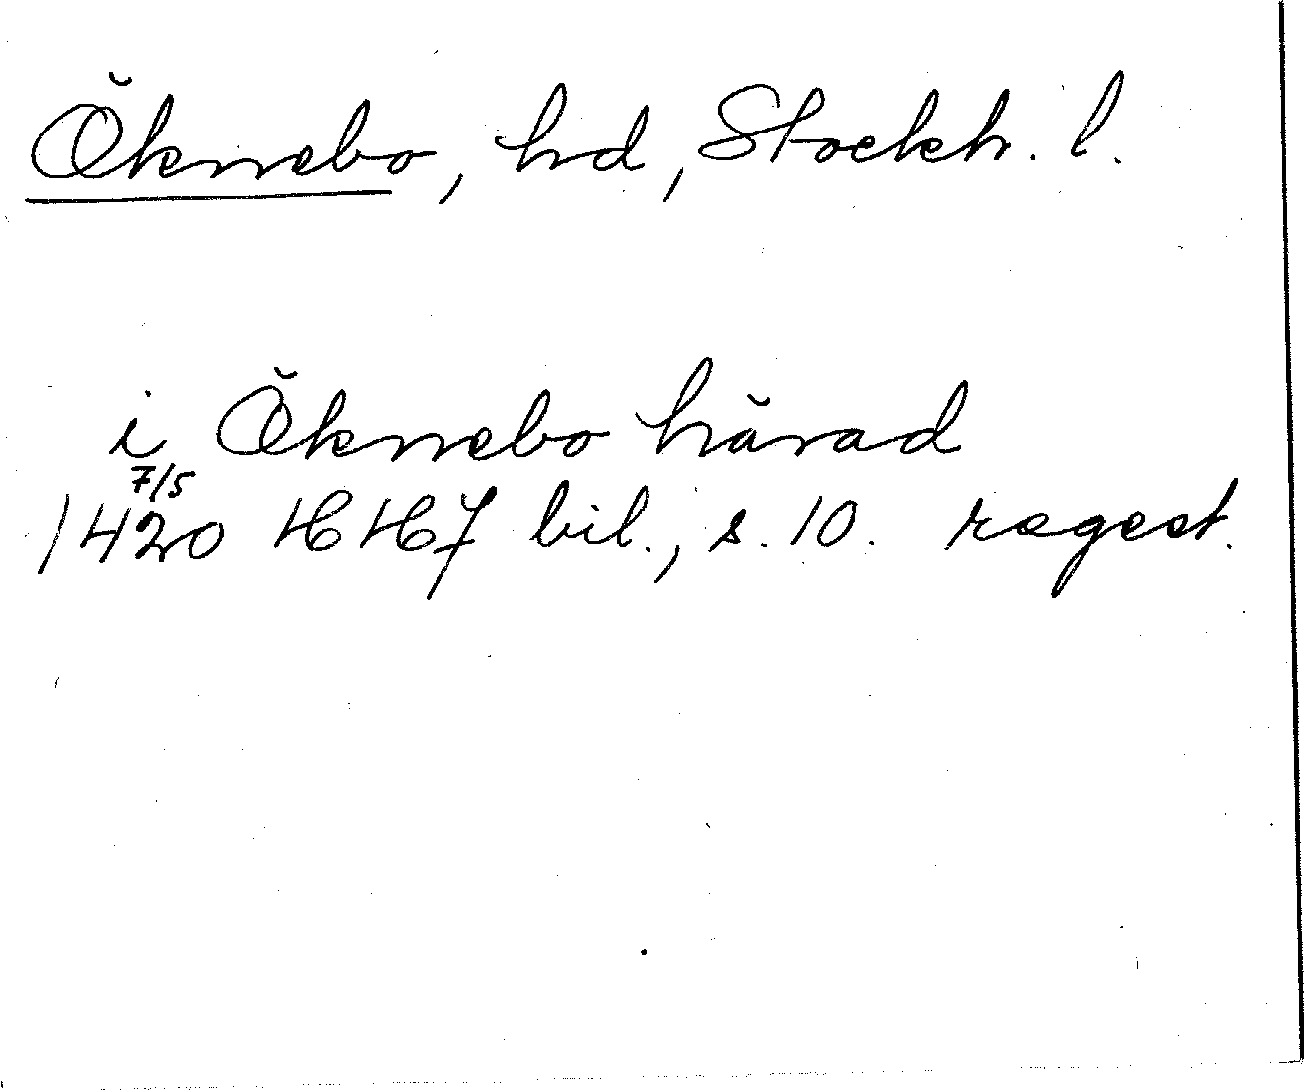 Öknebo, hd, Stockh. l.
i Öknebo härad
7/5
1420 HH 7 bil., s. 10. regest.